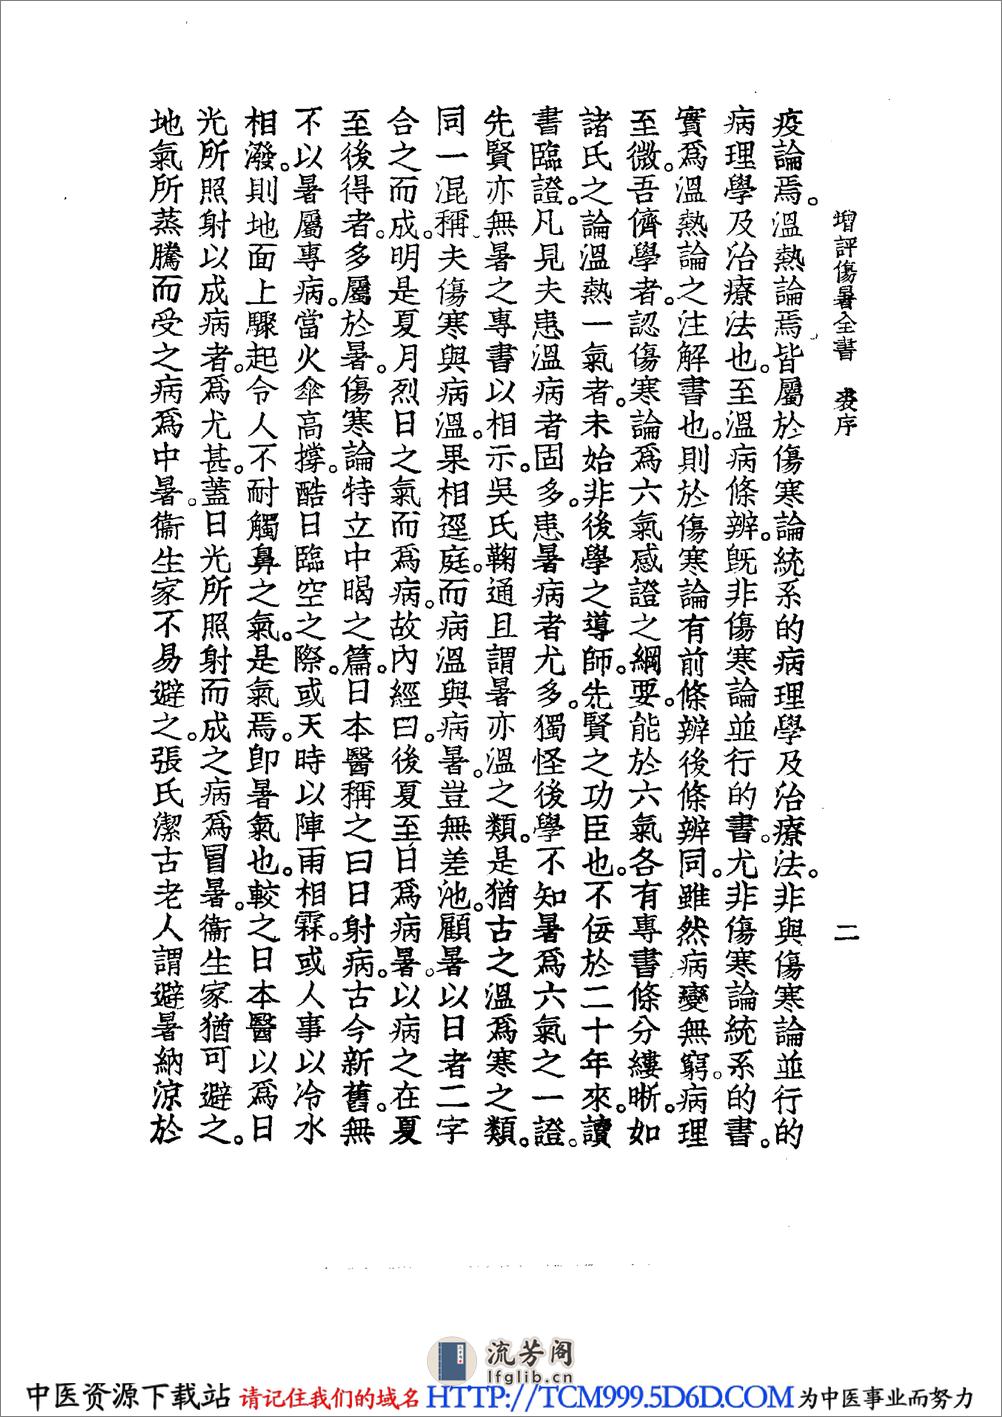 增評傷暑全書　裘序　二
疫論焉。溫熱論焉。皆屬於傷寒論統系的病理學及治療法。非與傷寒論並行的
病理學及治療法也。至溫病條辨。旣非傷寒論並行的書。尤非傷寒論統系的書。
實爲溫熱論之注解書也。則於傷寒論有前條辨後條辨同。雖然病變無窮。病理
至微。吾儕學者。認傷寒論爲六氣感證之綱要。能於六氣各有專書條分縷晰。如
諸氏之論溫熱一氣者。未始非後學之導師。先賢之功臣也。不佞於二十年來。讀
書臨證。凡見夫患溫病者。固多。患暑病者尤多。獨怪後學不知暑爲六氣之一證。
先賢亦無暑之專書以相示。吳氏鞠通且謂暑亦溫之類。是猶古之溫爲寒之類。
同一混稱。夫傷寒與病溫。果相逕庭。而病溫與病暑。豈無差池。顧暑以日者二字
合之而成。明是夏月烈日之氣而爲病。故內經曰。後夏至日爲病暑。以病之在夏
至後得者。多屬於暑。傷寒論特立中暍之篇。日本醫稱之曰日射病。古今新舊。無
不以暑屬專病。當火傘高撐。酷日臨空之際。或天時以陣雨相霖。或人事以冷水
相潑。則地面上驟起令人不耐觸鼻之氣。是氣焉。卽暑氣也。較之日本醫以爲日
光所照射以成病者。爲尤甚。蓋日光所照射而成之病爲冒暑。衞生家猶可避之。
地氣所蒸騰而受之病爲中暑。衞生家不易避之。張氏潔古老人謂避暑納涼於
流芳阁
lfglib.cn
中医资源下载站 请记住我们的域名 HTTP://TCM999.5D6D.COM 为中医事业而努力